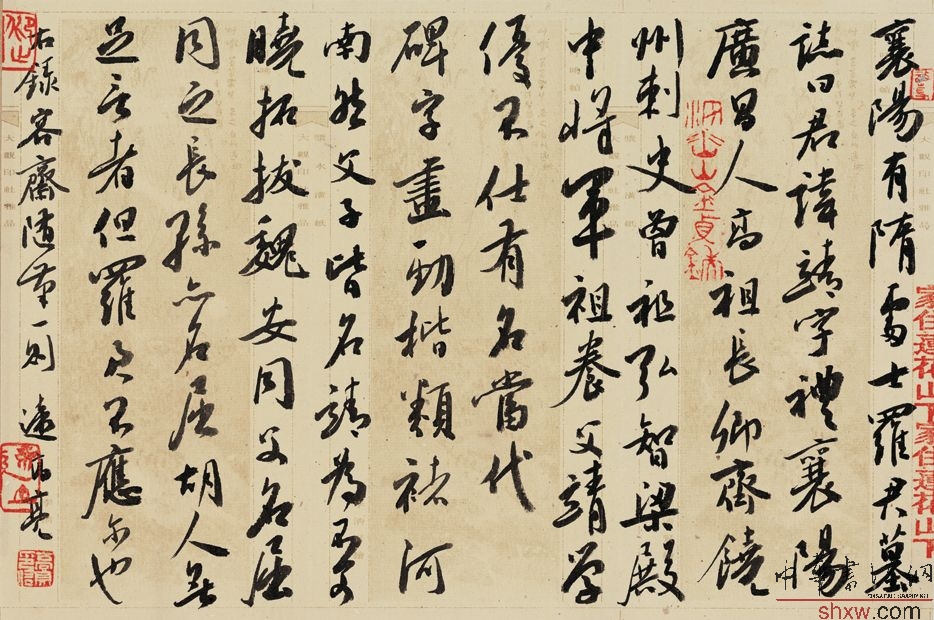 襄陽有隋處士羅君墓
誌曰君諱靖字禮襄陽
廣昌人高祖長卿齊饒
州刺史曾祖弘智梁殿
中將軍祖養父靖學
優不仕有名當代
碑字畫勁楷類褚河
南然父子皆名靖為不可
曉拓拔魏安同父名屈
同之長孫亦名屈胡人無
足言者但羅君不應爾也
右錄容齋隨筆一則
家住蓮花山下家住蓮花山下
中華書法网
shxw.com